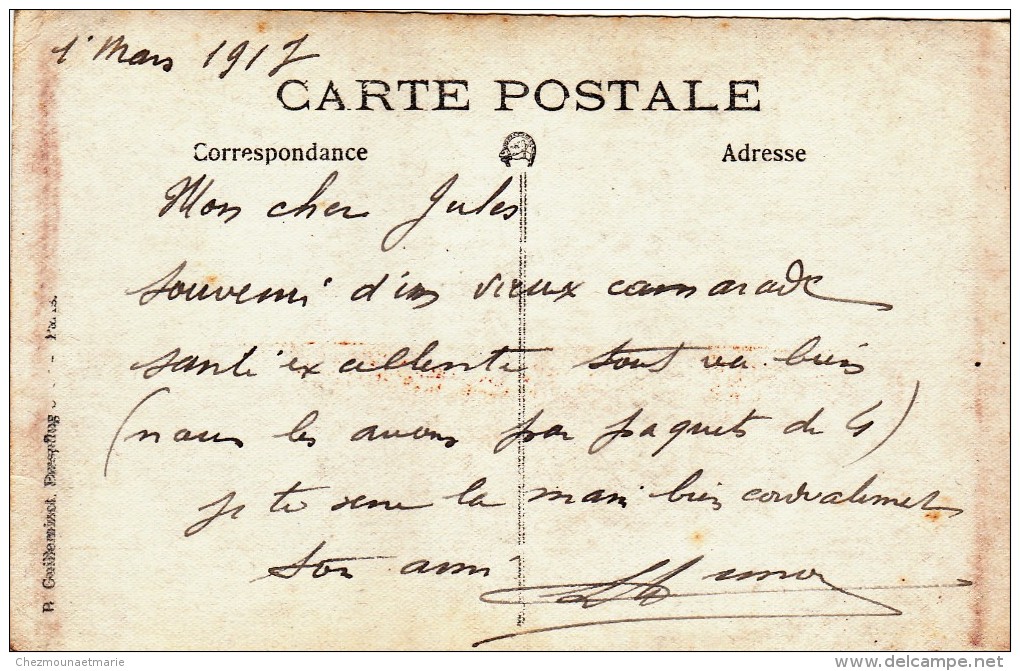 1r Mars 1917
CARTE POSTALE
Correspondance
Adresse
Mon cher Jules
souvenir d'un vieux camarade
santé excellente tout va bien
(nous les avons par paquets de 4)
je te serre la main bien cordialement
ton ami
R. Guilleminot, Paris.
Chezmounaetmarie
delcampe.net